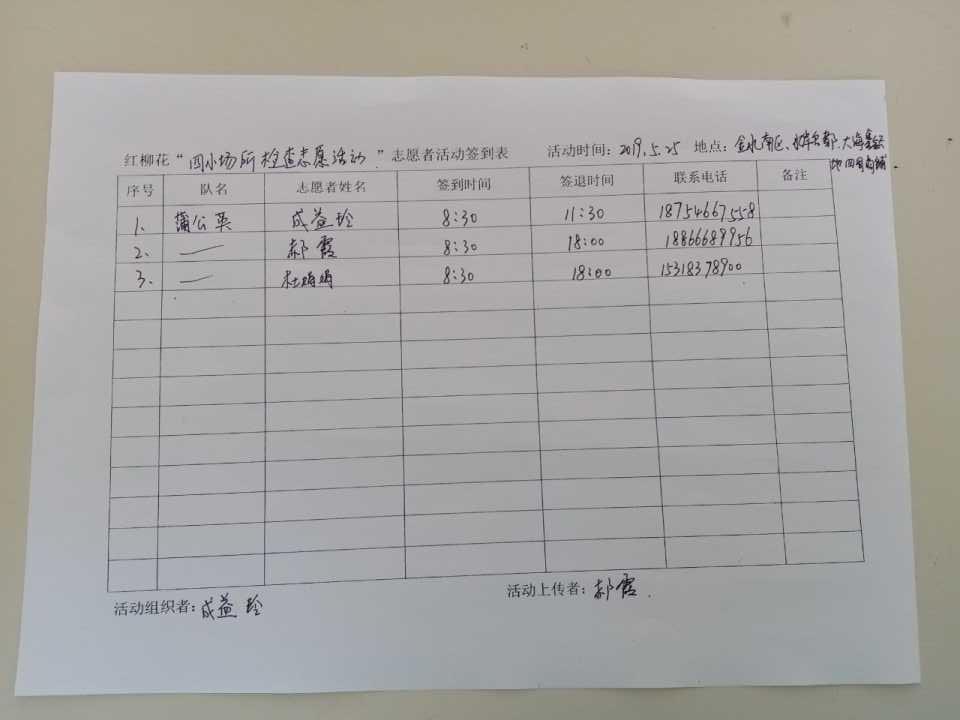 红柳花“四小场所检查志愿活动”志愿者活动签到表 活动时间：2019.5.25 地点：金水南区、 大海
四号商铺.
序号 队名 志愿者姓名 签到时间 签退时间 联系电话 备注
1. 蒲公英 成益玲 8:30 11:30 18754667558
2. — 郝霞 8:30 18:00 18866689956
3. — 杜娟娟 8:30 18:00 15318378900
活动组织者：成益玲 活动上传者：郝霞.